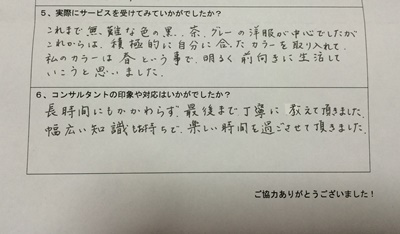 5、実際にサービスを受けてみていかがでしたか?
これまで無難な色の黒、茶、グレーの洋服が中心でしたが
これからは、積極的に自分に合ったカラーを取り入れて
私のカラーは春という事で、明るく前向きに生活して
いこうと思いました。
6、コンサルタントの印象や対応はいかがでしたか?
長時間にもかかわらず、最後まで丁寧に教えて頂きました。
幅広い知識をお持ちで、楽しい時間を過ごさせて頂きました。
ご協力ありがとうございました!